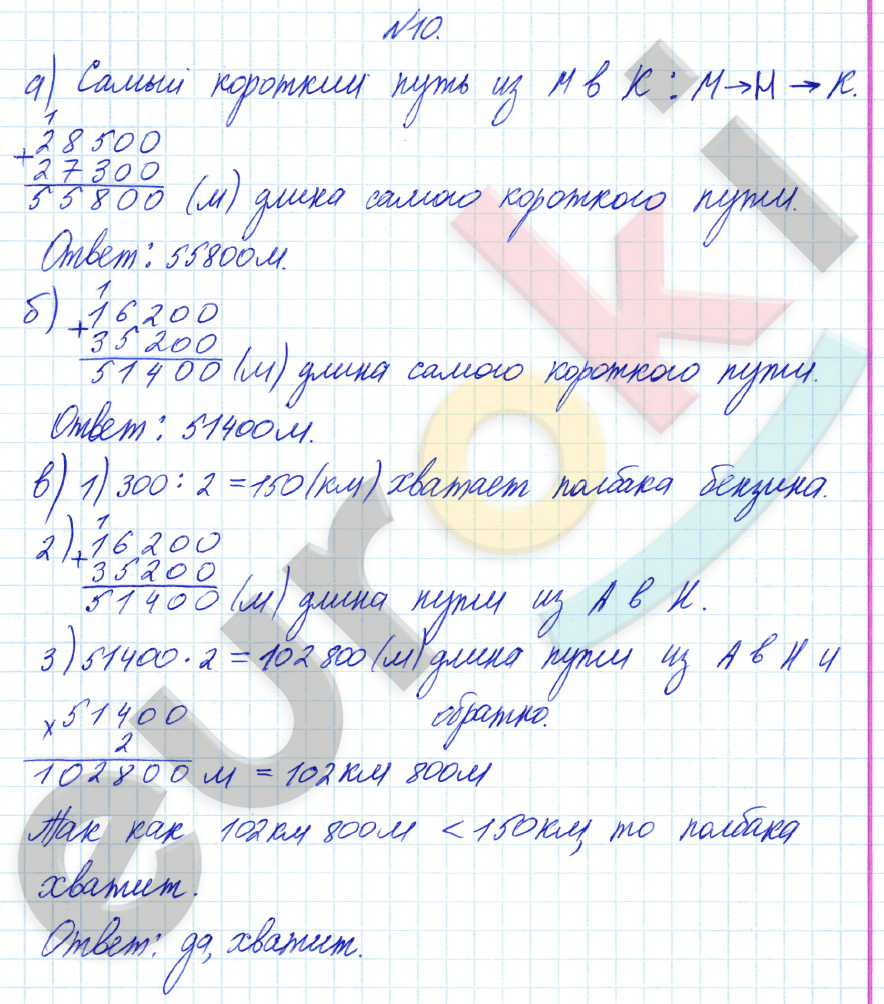 №10.
а) Самый короткий путь из М в К : М→Н→К.
1
+28500
27300
55800 (м) длина самого короткого пути.
Ответ: 55800м.
1
б) +16200
35200
51400 (м) длина самого короткого пути.
Ответ: 51400м.
в) 1) 300 : 2 = 150 (км) хватает полбака бензина.
1
2) +16200
35200
51400 (м) длина пути из А в Н.
3) 51400 · 2 = 102800 (м) длина пути из А в Н и
обратно.
×51400
2
102800 м = 102км 800м
Так как 102км 800м < 150км, то полбака
хватит.
Ответ: да, хватит.
euroki